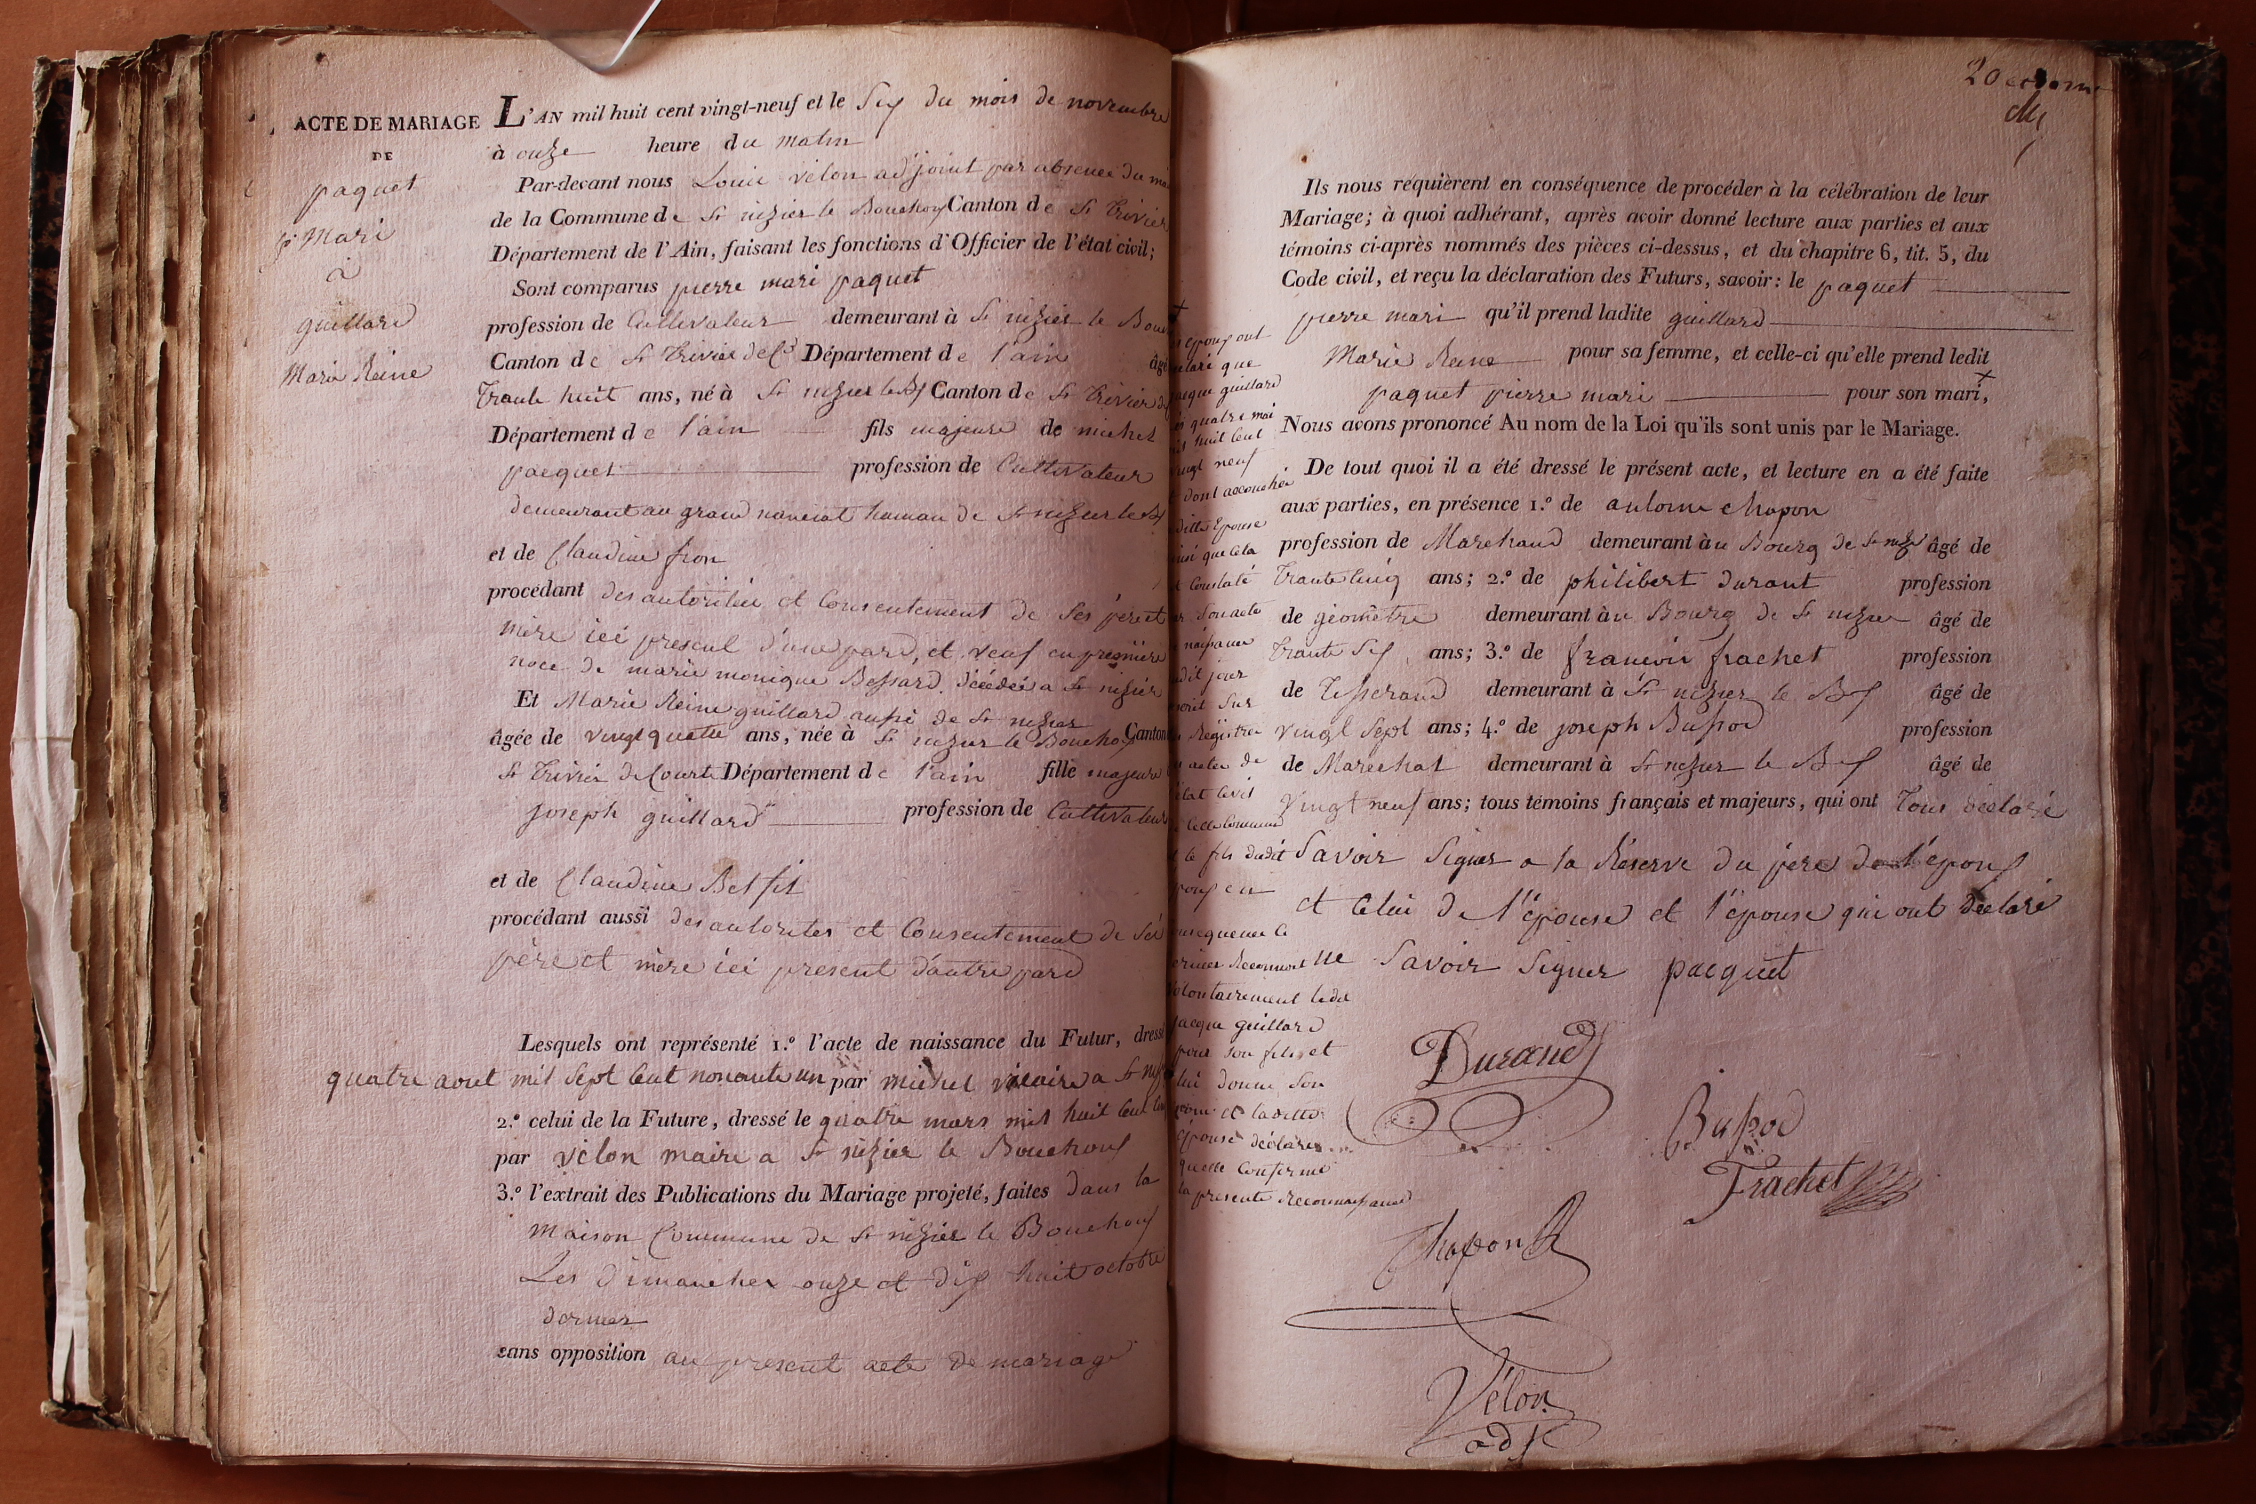 ACTE DE MARIAGE
DE
paquet
pre Mari
à
guillard
Marie Reine
L'AN mil huit cent vingt-neuf et le Six du mois de novembre
à onze heure du matin
Par-devant nous Louis vélon adjoint par absence du
de la Commune de St nizier le Bouchoux Canton de St Trivier
Département de l'Ain, faisant les fonctions d'Officier de l'état civil;
Sont comparus pierre mari paquet
profession de Cultivateur demeurant à St nizier le Bou
Canton de St Trivier de Ct Département de l'ain âgé
Trante huit ans, né à St nizier le Bx Canton de St Trivier
Département de l'ain fils majeure de michel
pacquet profession de Cultivateur
demeurant au grand hamau de St nizier le Bx
et de Claudine fron
procédant des autorités et Consentement de Ses père et
mère ici present d'une pard, et veuf en première
noce de marie monique Bessard décédée a St nizier
Et Marie Reine guillard aussi de St nizier
âgée de vingt quatre ans, née à St nizier le Bouchoux Canton
St Trivier de Courte Département de l'ain fille majeure
joseph guillard profession de Cultivateur
et de Claudine Belfit
procédant aussi des autorites et Consentement de Ses
père et mère ici present d'autre pard
Lesquels ont représenté 1.º l'acte de naissance du Futur, dressé
quatre aout mil Sept Cent nonante un par michel vicaire a St
2.º celui de la Future, dressé le quatre mars mil huit Cent
par vélon maire a St nizier le Bouchoux
3.º l'extrait des Publications du Mariage projeté, faites dans la
maison Commune de St nizier le Bouchoux
Les dimanches onze et dix huit octobre
dernier
sans opposition au present acte de mariage
Ils nous requièrent en conséquence de procéder à la célébration de leur
Mariage; à quoi adhérant, après avoir donné lecture aux parties et aux
témoins ci-après nommés des pièces ci-dessus, et du chapitre 6, tit. 5, du
Code civil, et reçu la déclaration des Futurs, savoir: le paquet
pierre mari qu'il prend ladite guillard
Marie Reine pour sa femme, et celle-ci qu'elle prend ledit
paquet pierre mari pour son mari,
Nous avons prononcé Au nom de la Loi qu'ils sont unis par le Mariage.
De tout quoi il a été dressé le présent acte, et lecture en a été faite
aux parties, en présence 1.º de antoine chapon
profession de Marchand demeurant àu Bourg de St nizier âgé de
Trante Cinq ans; 2.º de philibert durant profession
de géomètre demeurant àu Bourg de St nizier âgé de
Trante Six ans; 3.º de francois frachet profession
de Tisserand demeurant à St nizier le Bx âgé de
vingt Sept ans; 4.º de joseph Bussod profession
de Marechal demeurant à St nizier le Bx âgé de
vingt neuf ans; tous témoins français et majeurs, qui ont Tous déclaré
Savoir Signer a la Réserve du père de l'époux
et Celui de l'épouse et l'épouse qui ont declaré
ne Savoir Signer pacquet
époux ont
que
guillard
quatre mai
huit Cent
vingt neuf
dont accouchée
Epouse
que cela
Constaté
Son acte
jour
Sur
Registre
actes de
état Civil
le fils dudit
époux en
Reconnoit
volontairement ledit
jacque guillard
pour Son fils et
lui donne Son
nom et laditte
épouse déclarer
quelle Confirme
la presente Reconnaissance
Durand
Bussod
Frachet
Chapon
Vélon
adj